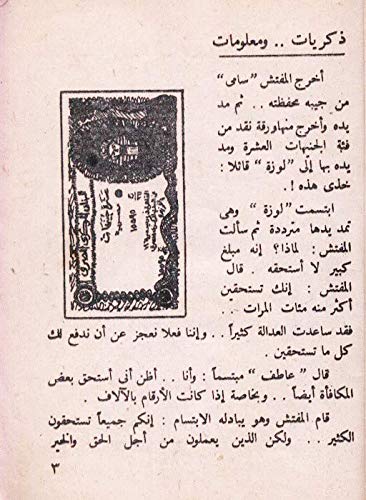 ذكريات .. ومعلومات
أخرج المفتش "سامى"
من جيبه محفظته .. ثم مد
يده وأخرج منها ورقة نقد من
فئة الجنيهات العشرة ومد
يده بها إلى "لوزة" قائلا :
خذى هذه ! .
ابتسمت "لوزة" وهى
تمد يدها مترددة ثم سألت
المفتش : لماذا ؟ إنه مبلغ
كبير لا أستحقه . قال
المفتش : إنك تستحقين
أكثر منه مئات المرات . .
فقد ساعدت العدالة كثيراً . . وإننا فعلا نعجز عن أن ندفع لك
كل ما تستحقين .
قال "عاطف" مبتسماً : وأنا . . أظن أنى أستحق بعض
المكافأة أيضاً . . وبخاصة إذا كانت الأرقام بالآلاف .
قام المفتش وهو يبادله الابتسام : إنكم جميعاً تستحقون
الكثير . . ولكن الذين يعملون من أجل الحق والخير
٣
البنك المركزى المصرى
عشرة جنيهات